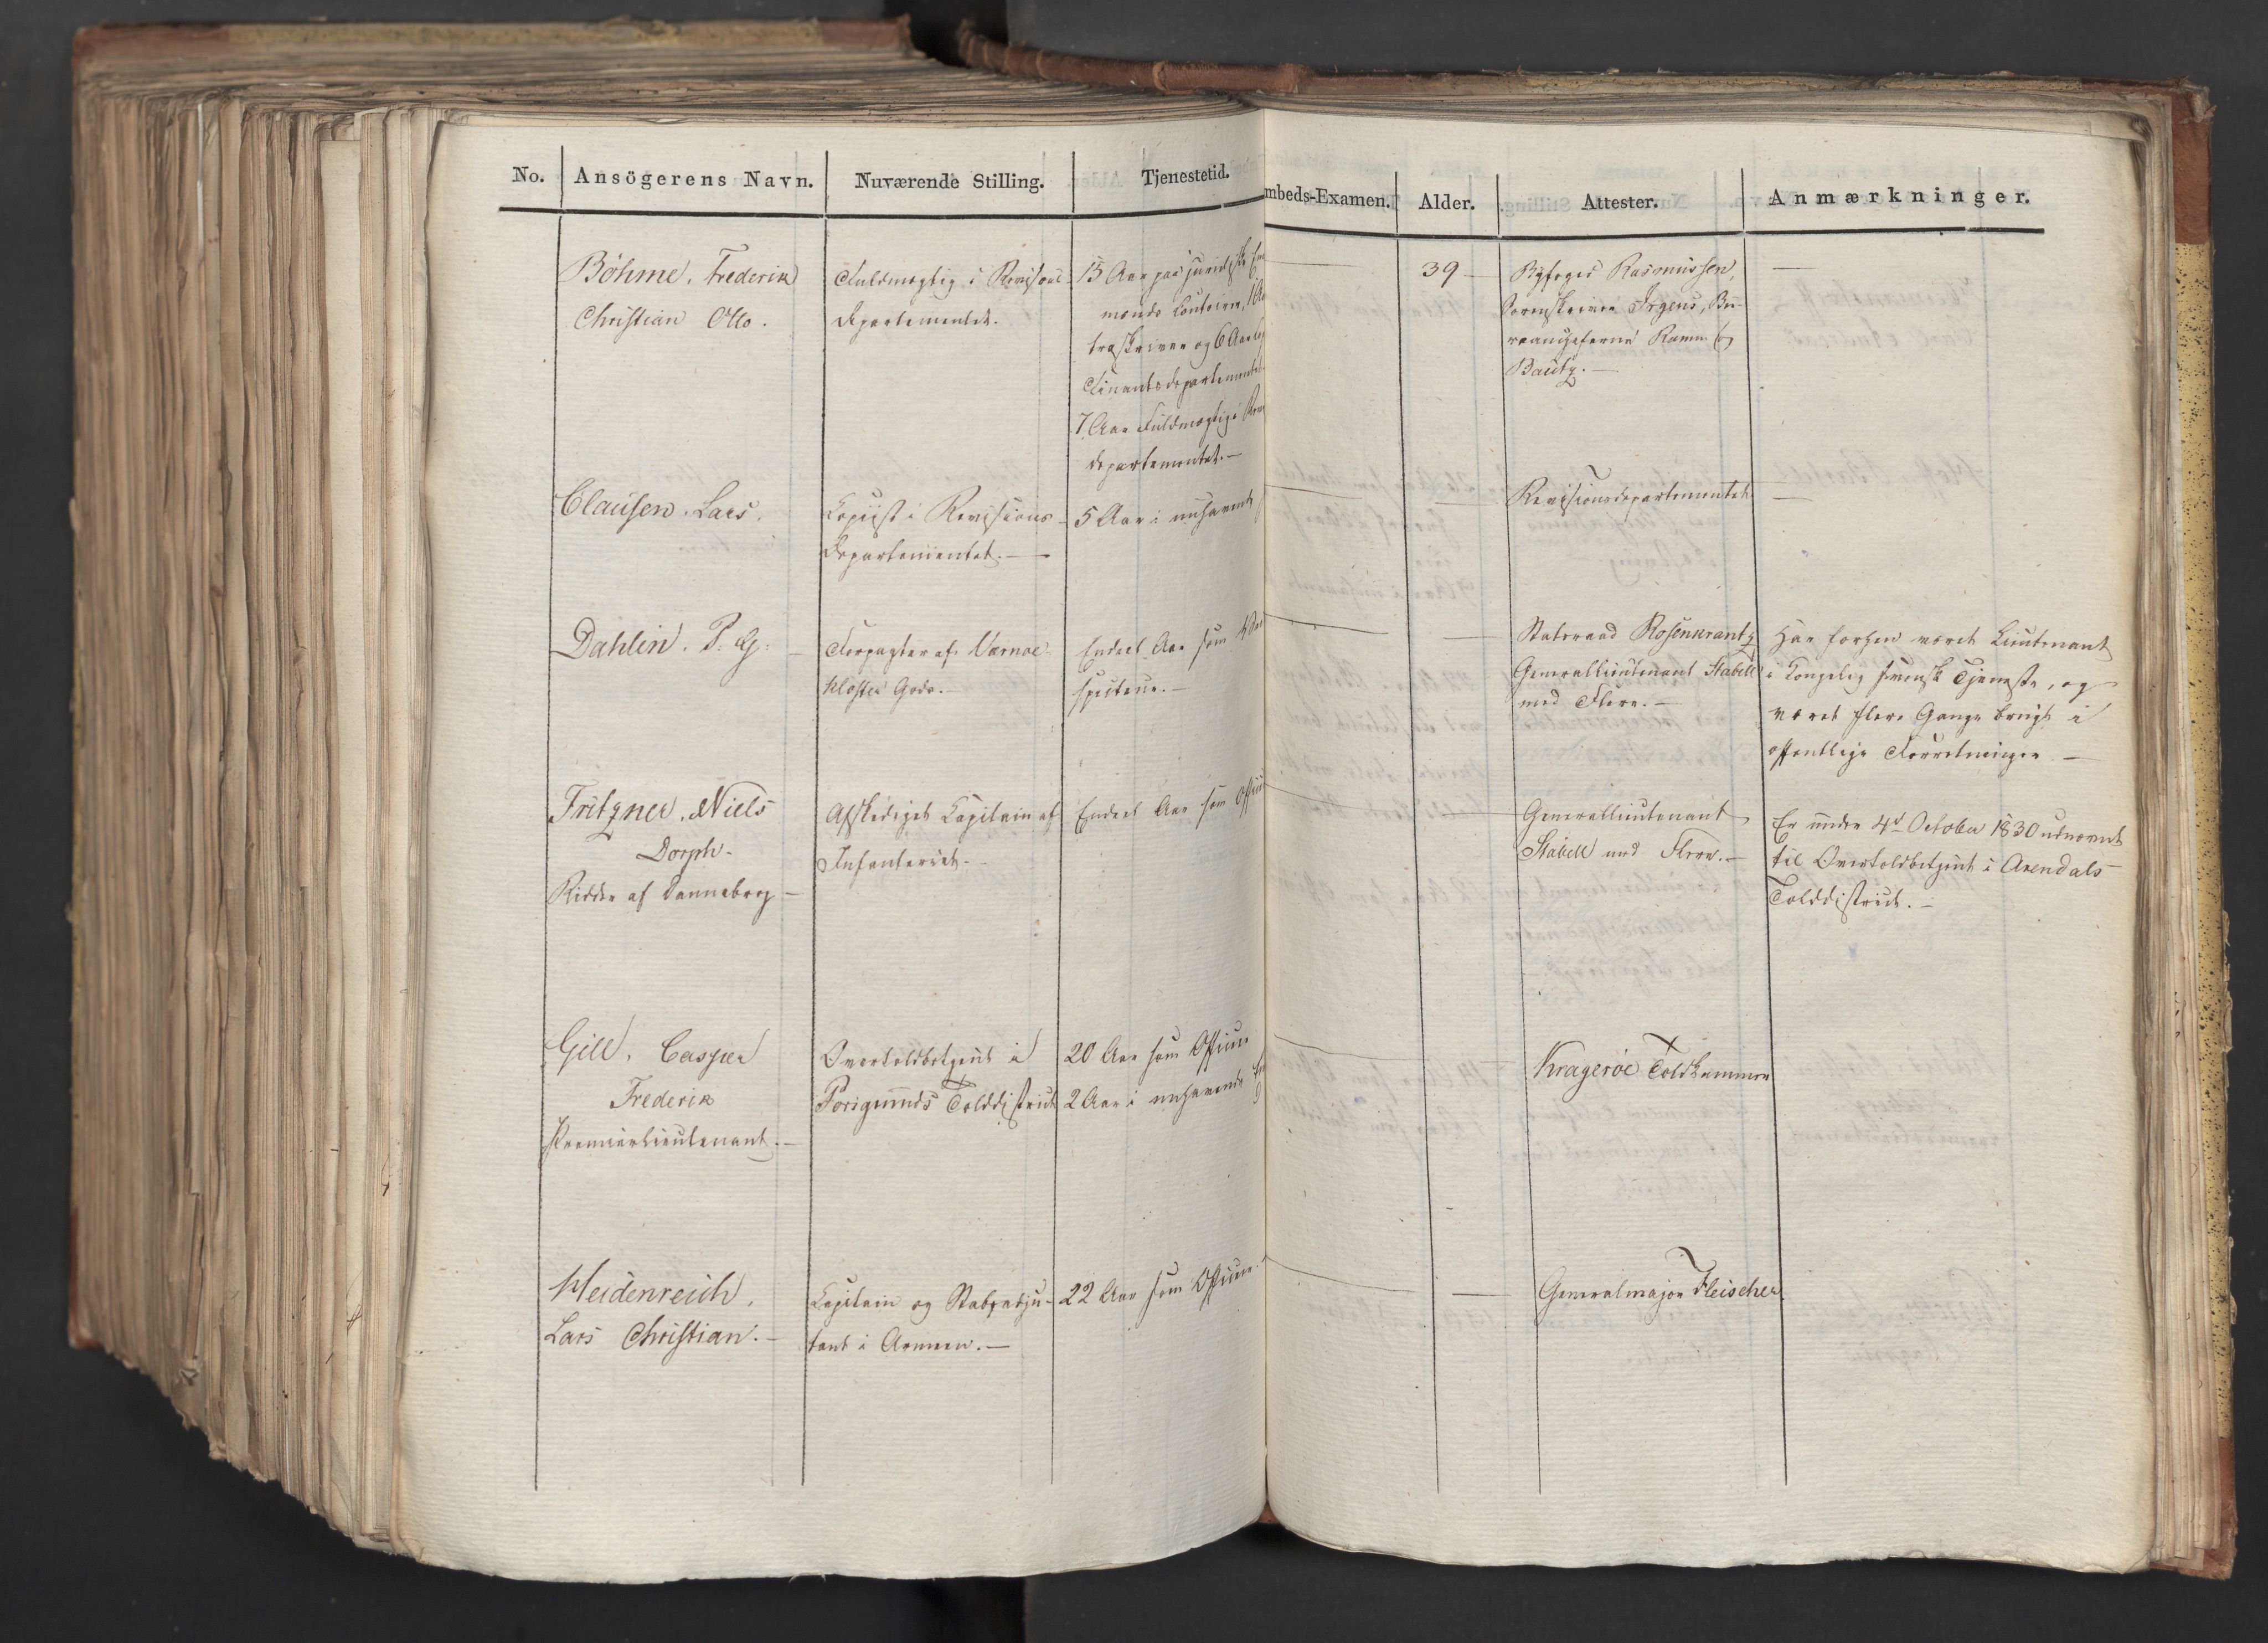 No. Ansögerens Navn. Nuværende Stilling. Tjenestetid.
Böhme, Frederik
Christian Otto.
Fuldmægtig i Revisions-
departementet.
15 Aar paa juridiske
mænds Contoirer,
traskriver og 6 Aar
Finantsdepartementet
7 Aar Fuldmægtig i
departementet.—
Clausen. Lars.
Copiist i Revisions-
departementet.—
5 Aar i nuhavende
Dahlin. P. G. —
Forpagter af Varnæ
Kloster Gods.—
Endeel Aar som
specteur.—
Fritzner. Niels
Dorph-
Ridder af Dannebrog—
Afskediget Capitain af
Infanteriet.-
Endeel Aar som
Gill. Casper
Frederik
Premierlieutenant.—
Overtoldbetjent i
Porsgrunds Tolddistrict
20 Aar som Officier
2 Aar i nuhavende
Heidenreich.
Lars Christian.—
Capitain og Stabsadju-
tant i Armeen.—
22 Aar som Officier.
mbeds-Examen. Alder. Attester. Anmærkninger.
39 —
Byfoged Rasmussen,
Sorenskriver Irgens, Bu-
reaucheferne Ramm og
Bautz.—
—
—
Revisionsdepartementet
—
—
Statsraad Rosenkrantz
Generallieutenant Stabell
med Flere.—
Har forhen været Lieutenant
i Kongelig svensk Tjeneste, og
været flere Gange brugt i
offentlige Forretninger —
—
Generallieutenant
Stabell med Flere.—
Er under 4de October 1830 udnævnt
til Overtoldbetjent i Arendals
Tolddistrict.—
Kragerøe Toldkammer
—
Generalmajor Fleischer